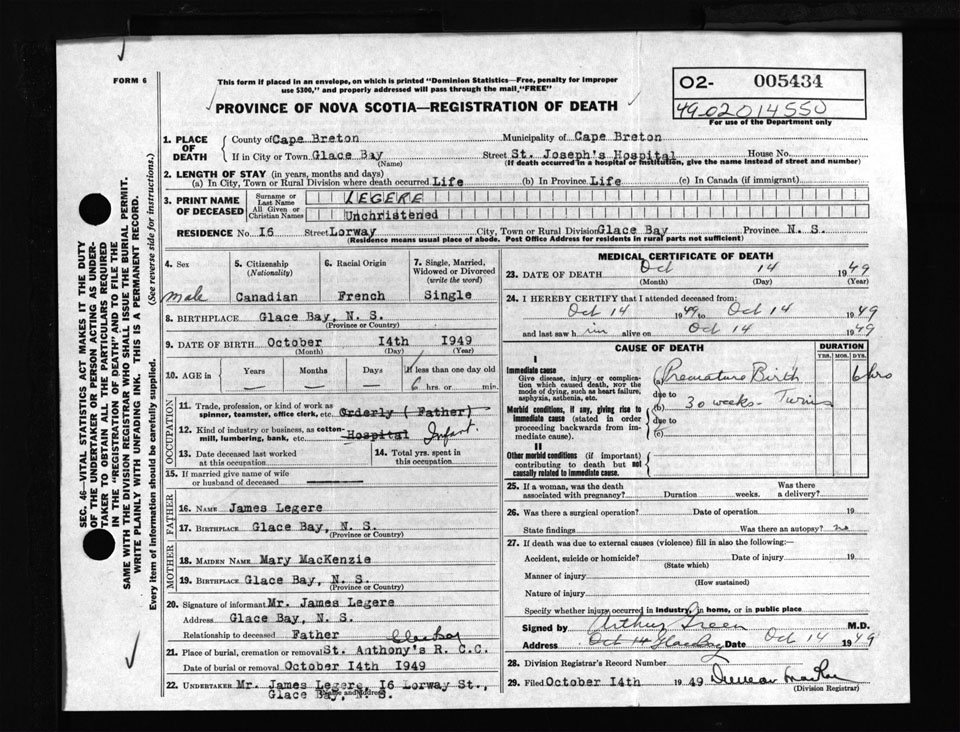 FORM 6
This form if placed in an envelope, on which is printed "Dominion Statistics—Free, penalty for improper
use $300," and properly addressed will pass through the mail, "FREE"
PROVINCE OF NOVA SCOTIA—REGISTRATION OF DEATH
O2- 005434
49-02014550
For use of the Department only
SEC. 46—VITAL STATISTICS ACT MAKES IT THE DUTY
OF THE UNDERTAKER OR PERSON ACTING AS UNDER-
TAKER TO OBTAIN ALL THE PARTICULARS REQUIRED
IN THE "REGISTRATION OF DEATH" AND TO FILE THE
SAME WITH THE DIVISION REGISTRAR WHO SHALL ISSUE THE BURIAL PERMIT.
WRITE PLAINLY WITH UNFADING INK. THIS IS A PERMANENT RECORD.
Every item of information should be carefully supplied. (See reverse side for instructions.)
1. PLACE OF DEATH County of Cape Breton Municipality of Cape Breton
If in City or Town Glace Bay (Name) Street St. Joseph's Hospital House No.
(If death occurred in a hospital or institution, give the name instead of street and number)
2. LENGTH OF STAY (in years, months and days)
(a) In City, Town or Rural Division where death occurred Life (b) In Province Life (c) In Canada (if immigrant)
3. PRINT NAME OF DECEASED Surname or Last Name LEGERE
All Given or Christian Names Unchristened
RESIDENCE No. I6 Street Lorway City, Town or Rural Division Glace Bay Province N. S.
(Residence means usual place of abode. Post Office Address for residents in rural parts not sufficient)
4. Sex male
5. Citizenship (Nationality) Canadian
6. Racial Origin French
7. Single, Married, Widowed or Divorced (write the word) Single
8. BIRTHPLACE Glace Bay, N. S.
(Province or Country)
9. DATE OF BIRTH October I4th I949
(Month) (Day) (Year)
10. AGE IN Years Months Days If less than one day old
— — — 6 hrs. or min.
OCCUPATION
11. Trade, profession, or kind of work as
spinner, teamster, office clerk, etc. Orderly ( Father)
12. Kind of industry or business, as cotton-
mill, lumbering, bank, etc. Hospital Infant.
13. Date deceased last worked at this occupation
14. Total yrs. spent in this occupation
15. If married give name of wife
or husband of deceased
FATHER
16. NAME James Legere
17. BIRTHPLACE Glace Bay, N. S.
(Province or Country)
MOTHER
18. MAIDEN NAME Mary MacKenzie
19. BIRTHPLACE Glace Bay, N. S.
(Province or Country)
20. Signature of informant Mr. James Legere
Address Glace Bay, N. S.
Relationship to deceased Father
Glace Bay
21. Place of burial, cremation or removal St. Anthony's R. C.C.
Date of burial or removal October I4th I949
22. UNDERTAKER Mr. James Legere, I6 Lorway St.,
Glace Bay, N. S.
(Name and address)
MEDICAL CERTIFICATE OF DEATH
23. DATE OF DEATH Oct 14 1949
(Month) (Day) (Year)
24. I HEREBY CERTIFY that I attended deceased from:
Oct 14 1949 to Oct 14 1949
and last saw him alive on Oct 14 1949
CAUSE OF DEATH DURATION
YRS. MOS. DYS.
I
Immediate cause
Give disease, injury or complica-
tion which caused death, nor the
mode of dying, such as heart failure,
asphyxia, asthenia, etc.
(a) Premature Birth 6 hrs
due to
(b) 30 weeks - Twins
Morbid conditions, if any, giving rise to
immediate cause (stated in order
proceeding backwards from im-
mediate cause).
due to
(c)
II
Other morbid conditions (if important)
contributing to death but not
causally related to immediate cause.
25. If a woman, was the death
associated with pregnancy? Duration weeks. Was there a delivery?
26. Was there a surgical operation? Date of operation 19
State findings Was there an autopsy? no
27. If death was due to external causes (violence) fill in also the following:—
Accident, suicide or homicide? Date of injury 19
(State which)
Manner of injury
(How sustained)
Nature of injury
Specify whether injury occurred in industry, in home, or in public place
Signed by Arthur Green M.D.
Address Oct 14 Glace Bay Date Oct 14 1949
28. Division Registrar's Record Number
29. Filed October I4th 1949
(Division Registrar)